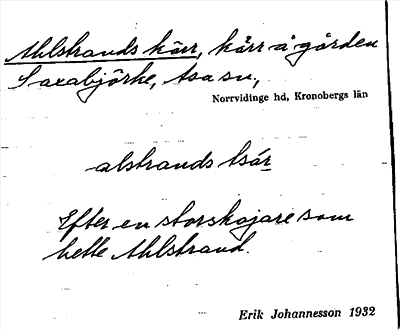 Ahlstrands kärr, kärr å gården
Saxabjörke, Asa sn.,
Norrvidinge hd, Kronobergs län
alstrands tsár
Efter en storskojare som
hette Ahlstrand.
Erik Johannesson 1932